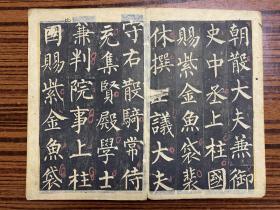 朝散大夫兼御
史中丞上柱國
賜紫金魚袋裴
休撰正議大夫
守右散騎常侍
充集賢殿學士
兼判院事上柱
國賜紫金魚袋